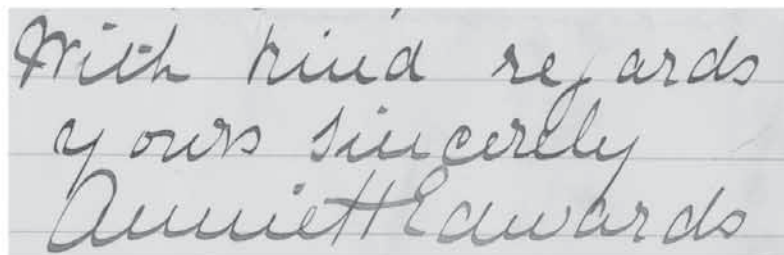 With kind regards
yours sincerely
Annie H Edwards